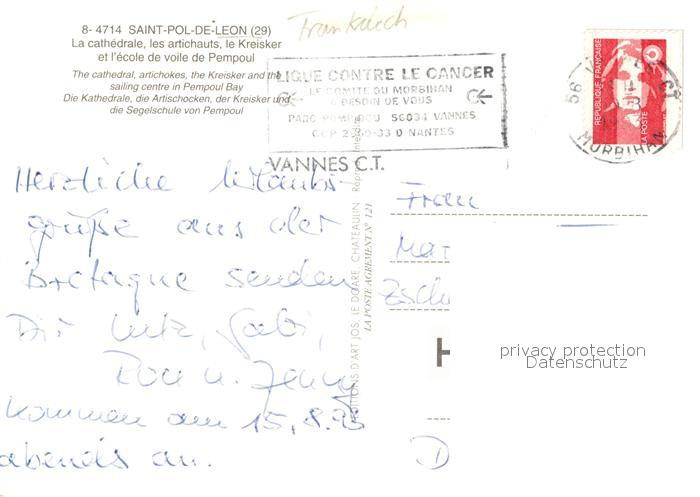 8- 4714 SAINT-POL-DE-LEON (29)
La cathédrale, les artichauts, le Kreisker
et l'école de voile de Pempoul
The cathedral, artichokes, the Kreisker and the
sailing centre in Pempoul Bay
Die Kathedrale, die Artischocken, der Kreisker und
die Segelschule von Pempoul
Frankreich
LIGUE CONTRE LE CANCER
LE COMITE DU MORBIHAN
A BESOIN DE VOUS
PARC POMPIDOU 56034 VANNES
CCP 2 NANTES
VANNES C.T.
REPUBLIQUE FRANÇAISE
LA POSTE
56
CT
MORBIHAN
Herzliche Urlaubs-
grüße aus der
Bretagne senden
Dir Lutz, Gabi,
Ron u. Jenny
kommen am 15.8.93
abends an.
EDITIONS D'ART JOS. LE DOARE, CHATEAULIN
LA POSTE AGREMENT N° 121
Frau
Mar
Zsch
H
D
privacy protection
Datenschutz